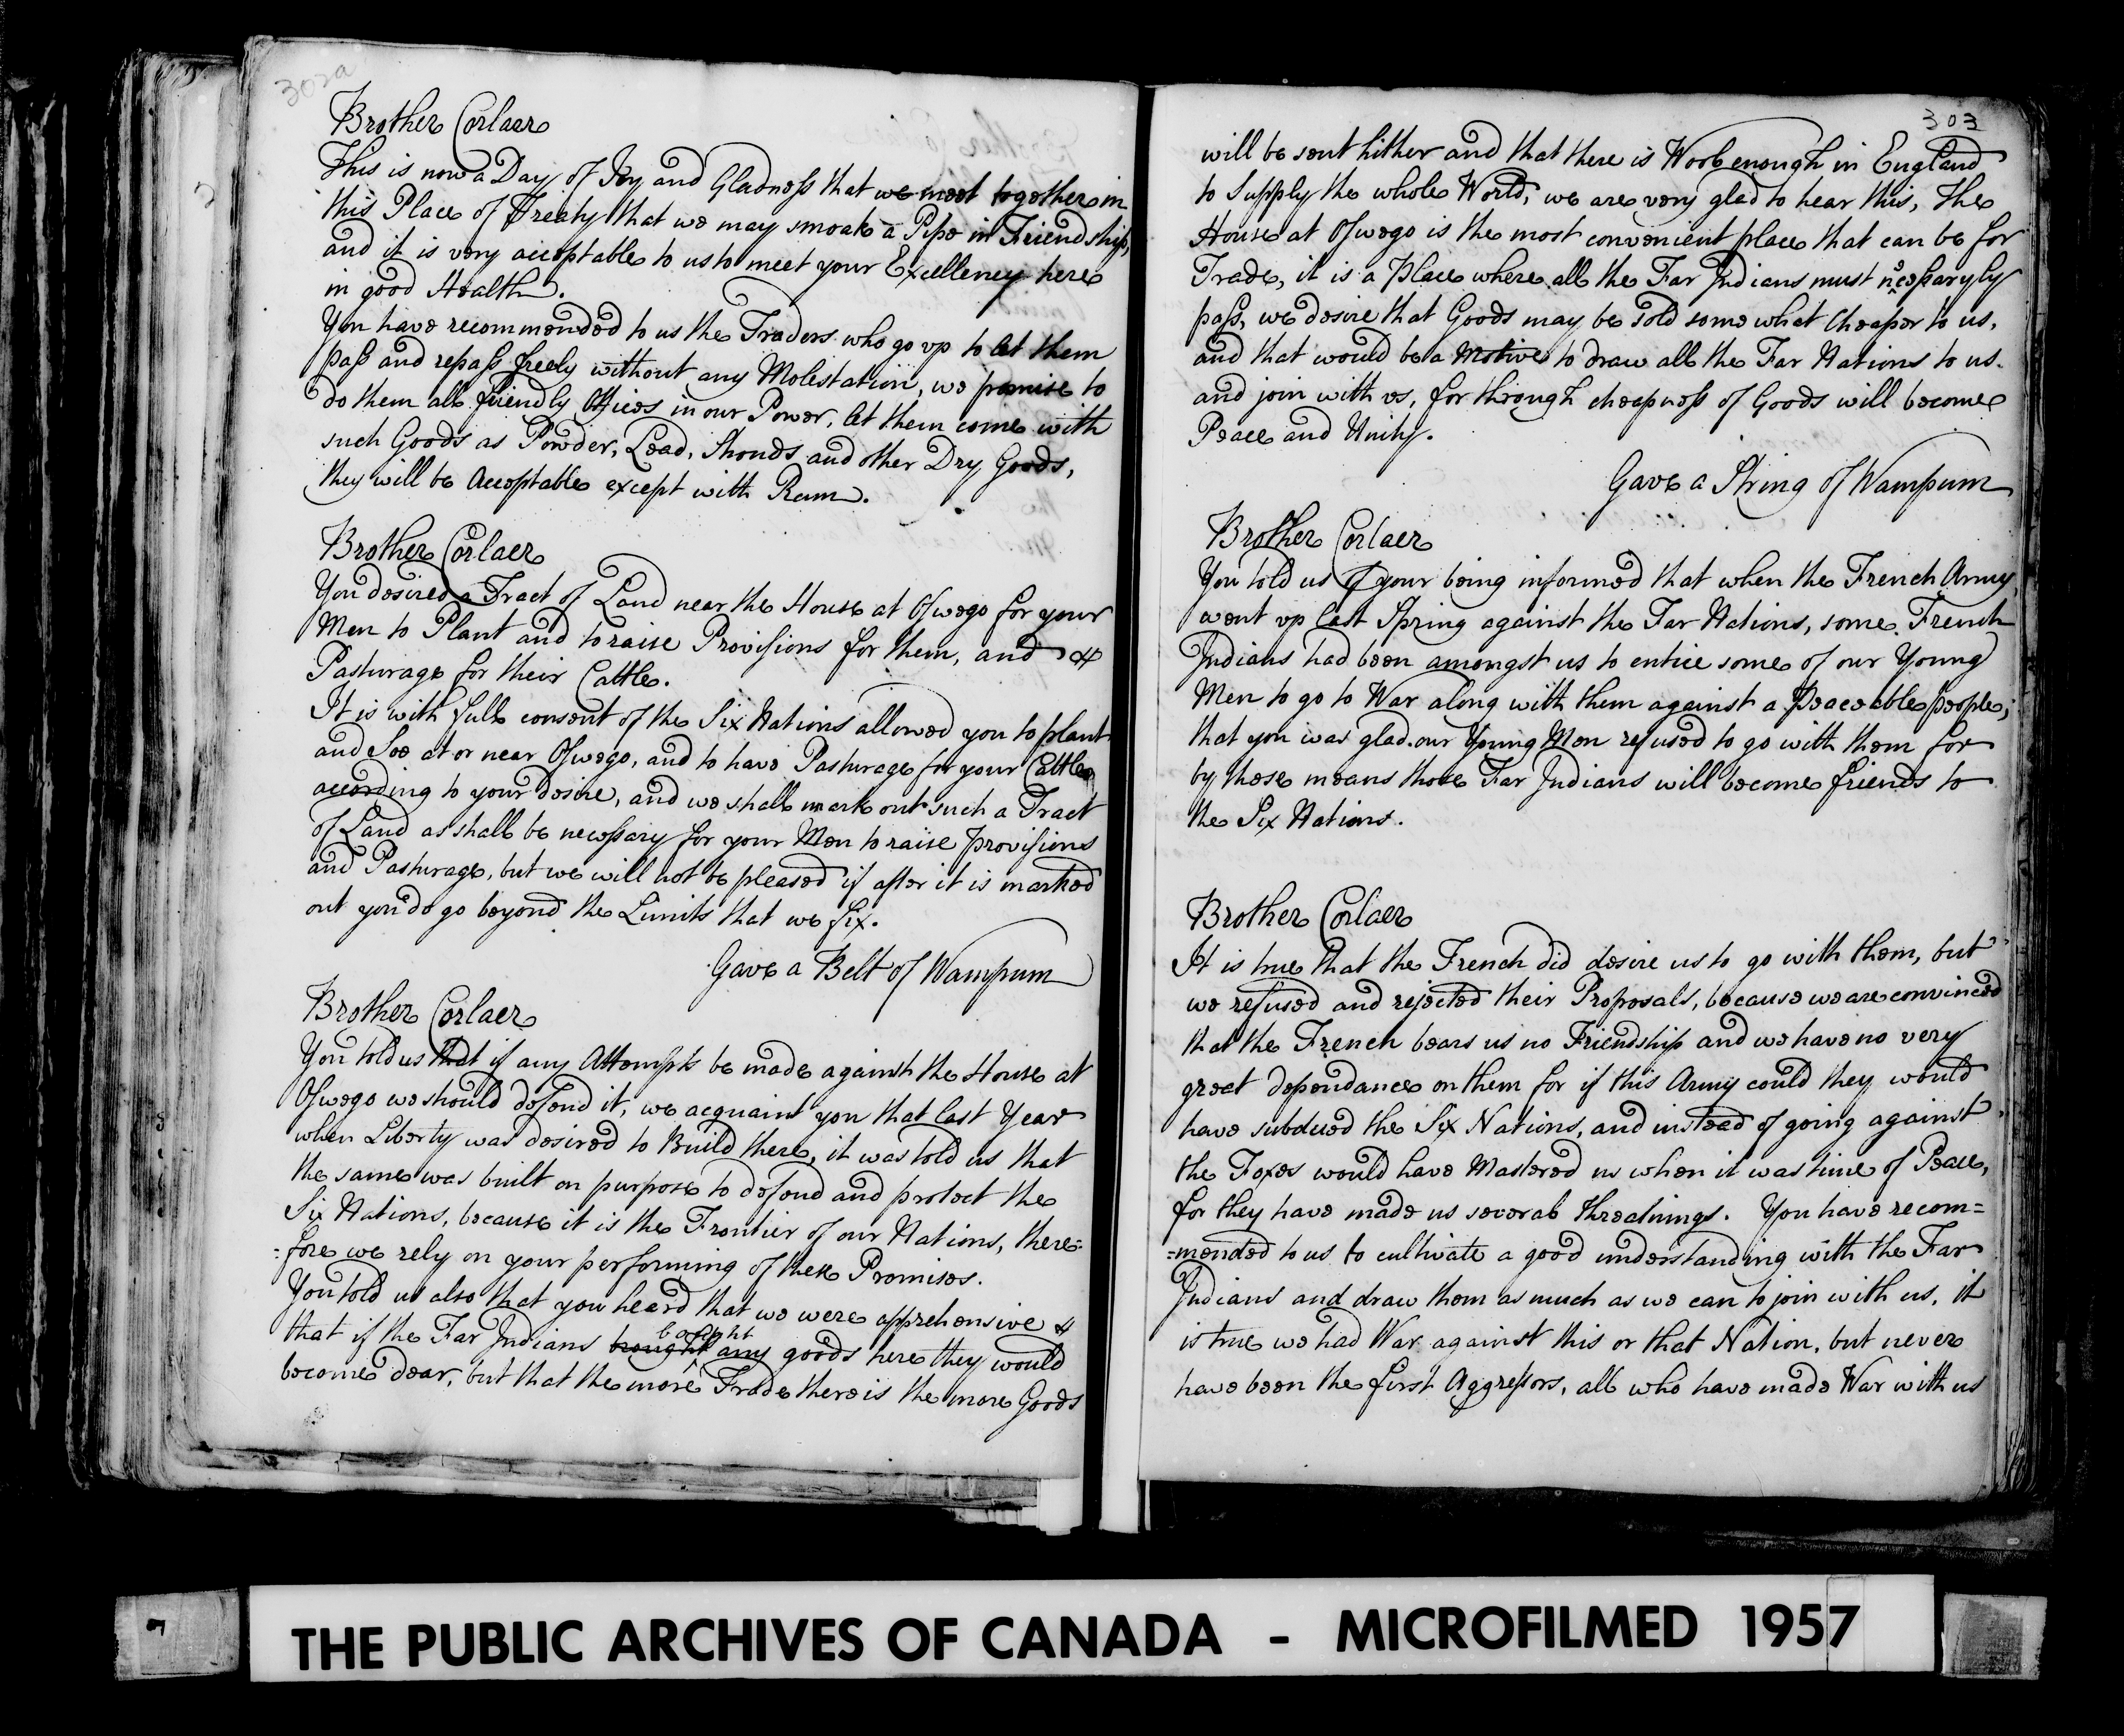 302a
Brother Corlaer
This is now a Day of Joy and Gladness that we meet together in
this Place of Treaty that we may smoak a Pipe in Friendship,
and it is very acceptable to us to meet your Excellency here
in good Health.
You have recommended to us the Traders who go up to let them
pass and repass freely without any Molestation, we promise to
do them all friendly Offices in our Power, let them come with
such Goods as Powder, Lead, Strouds and other Dry Goods,
they will be Acceptable except with Rum.
Brother Corlaer
You desired a Tract of Land near the House at Oswego for your
Men to Plant and to raise Provisions for them, and
Pasturage for their Cattle.
It is with full consent of the Six Nations allowed you to plant
and Soe at or near Oswego, and to have Pasturage for your Cattle
according to your desire, and we shall mark out such a Tract
of Land as shall be necessary for your Men to raise provisions
and Pasturage, but we will not be pleased if after it is marked
out you do go beyond the Limits that we fix.
Gave a Belt of Wampum
Brother Corlaer
You told us that if any Attempts be made against the House at
Oswego we should defend it, we acquaint you that last Year
when Liberty was desired to Build there, it was told us that
the same was built on purpose to defend and protect the
Six Nations, because it is the Frontier of our Nations, there=
=fore we rely on your performing of these Promises.
You told us also that you heard that we were apprehensive
that if the Far Indians brought bought any goods here they would
become dear, but that the more Trade there is the more Goods
303
will be sent hither and that there is Wool enough in England
to Supply the whole World, we are very glad to hear this, The
House at Oswego is the most convenient place that can be for
Trade, it is a Place where all the Far Indians must necessaryly
pass, we desire that Goods may be sold some what Cheaper to us,
and that would be a Motive to draw all the Far Nations to us.
and join with us, for through cheapness of Goods will become
Peace and Unity.
Gave a String of Wampum
Brother Corlaer
You told us of your being informed that when the French Army
went up last Spring against the Far Nations, some French
Indians had been amongst us to entice some of our Young
Men to go to War along with them against a Peaceable people;
that you was glad our Young Men refused to go with them for
by those means those Far Indians will become friends to
the Six Nations.
Brother Corlaer
It is true that the French did desire us to go with them, but
we refused and rejected their Proposals, because we are convinced
that the French bears us no Friendship and we have no very
great dependance on them for if this Army could they would
have subdued the Six Nations, and instead of going against
the Foxes would have Mastered us when it was time of Peace,
for they have made us several threatnings. You have recom=
=mended to us to cultivate a good understanding with the Far
Indians and draw them as much as we can to join with us, it
is true we had War against this or that Nation, but never
have been the first Aggressors, all who have made War with us
THE PUBLIC ARCHIVES OF CANADA - MICROFILMED 1957